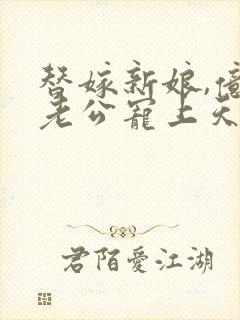 替嫁新娘,億
老公寵上天
君陌愛江湖